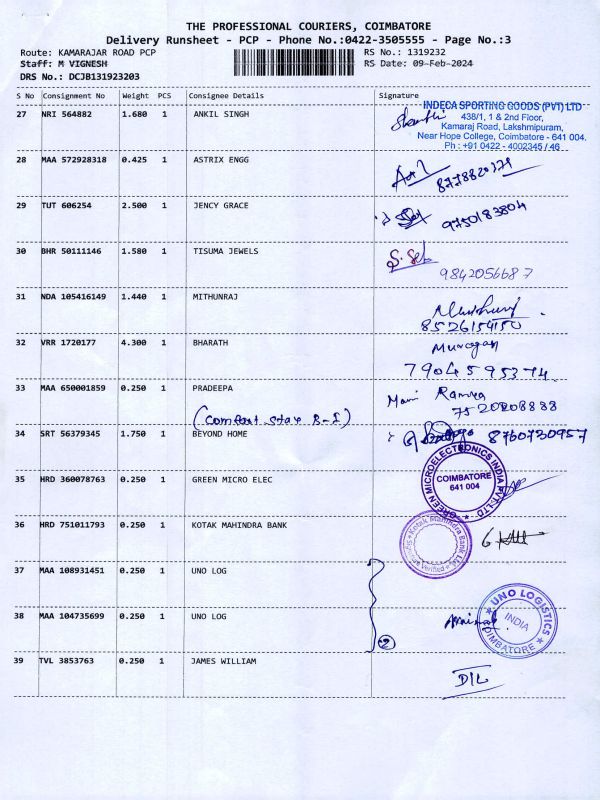 THE PROFESSIONAL COURIERS, COIMBATORE
Delivery Runsheet - PCP - Phone No.:0422-3505555 - Page No.:3
Route: KAMARAJAR ROAD PCP
Staff: M VIGNESH
DRS No.: DCJB131923203
RS No.: 1319232
RS Date: 09-Feb-2024
S No Consignment No Weight PCS Consignee Details Signature
27 NRI 564882 1.680 1 ANKIL SINGH
INDECA SPORTING GOODS (PVT) LTD
438/1, 1 & 2nd Floor,
Kamaraj Road, Lakshmipuram,
Near Hope College, Coimbatore - 641 004.
Ph : +91 0422 - 4002345 / 46
28 MAA 572928318 0.425 1 ASTRIX ENGG
29 TUT 606254 2.500 1 JENCY GRACE
9750183804
30 BHR 50111146 1.580 1 TISUMA JEWELS
9842056687
31 NDA 105416149 1.440 1 MITHUNRAJ
8526154150
32 VRR 1720177 4.300 1 BHARATH
Murugan
7904595374
33 MAA 650001859 0.250 1 PRADEEPA
(Comfort stay B-I)
Ramya
7520208888
34 SRT 56379345 1.750 1 BEYOND HOME
8760730957
35 HRD 360078763 0.250 1 GREEN MICRO ELEC
GREEN MICROELECTRONICS INDIA PVT LTD
COIMBATORE
641 004
36 HRD 751011793 0.250 1 KOTAK MAHINDRA BANK
Kotak Mahindra Bank Ltd
Signature Verified
37 MAA 108931451 0.250 1 UNO LOG
38 MAA 104735699 0.250 1 UNO LOG
2
UNO LOGISTICS
INDIA
COIMBATORE
39 TVL 3853763 0.250 1 JAMES WILLIAM
D/L